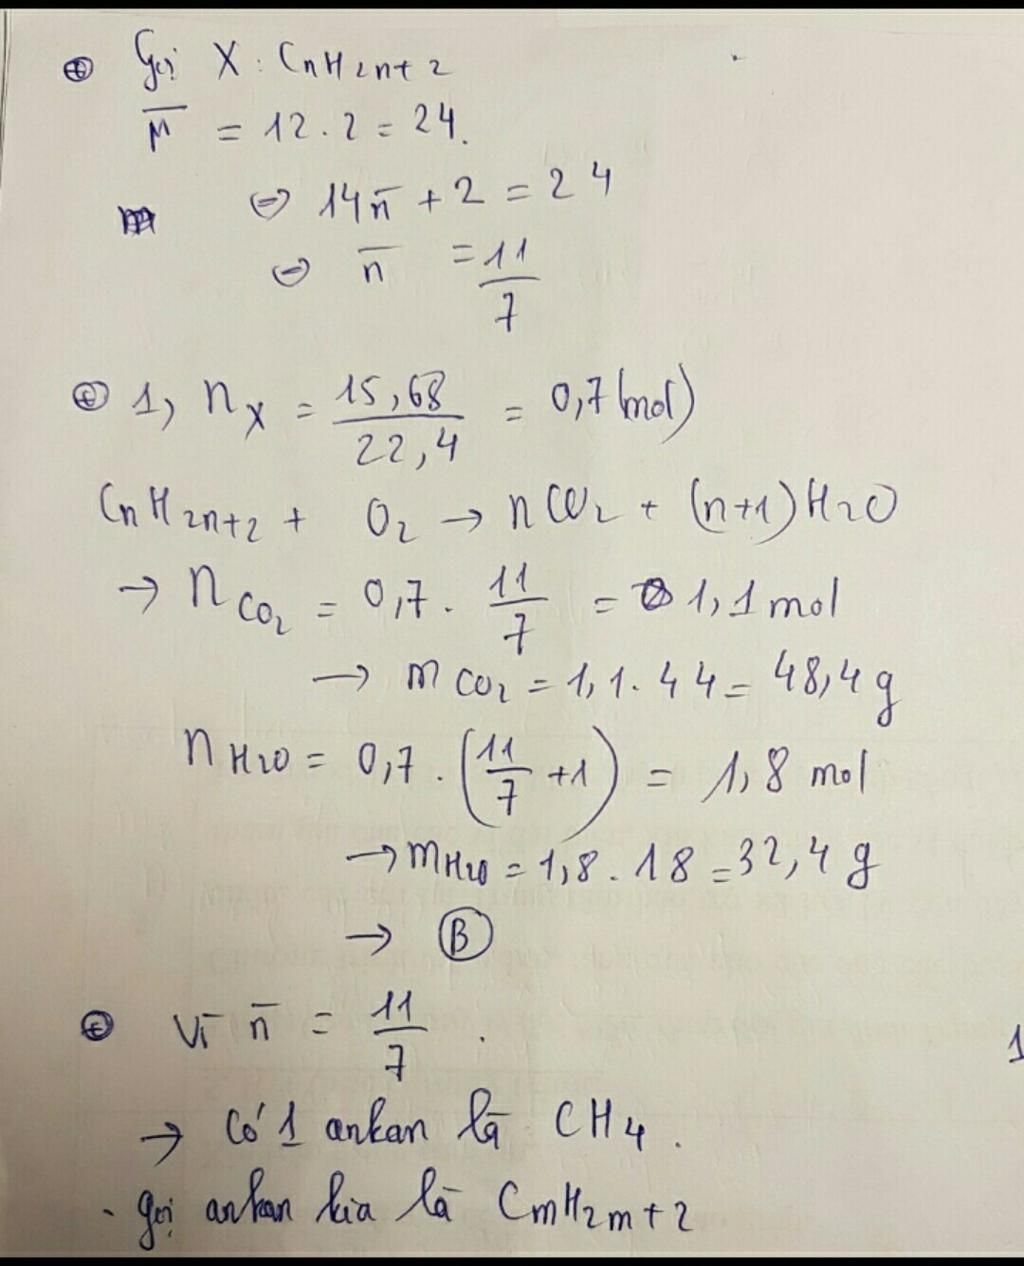 ⊕ Gọi X : CnH2n+2
M̅ = 12 . 2 = 24.
⊖ 14n̅ + 2 = 24
⊖ n̅ = 11/7
⊕ 1, nX = 15,68/22,4 = 0,7 (mol)
CnH2n+2 + O2 → nCO2 + (n+1)H2O
→ nCO2 = 0,7 . 11/7 = 1,1 mol
→ mCO2 = 1,1 . 44 = 48,4 g
nH2O = 0,7 . (11/7 + 1) = 1,8 mol
→ mH2O = 1,8 . 18 = 32,4 g
→ Ⓑ
⊕ Vì n̅ = 11/7 .
→ Có 1 ankan là CH4 .
- gọi ankan kia là CmH2m+2
1